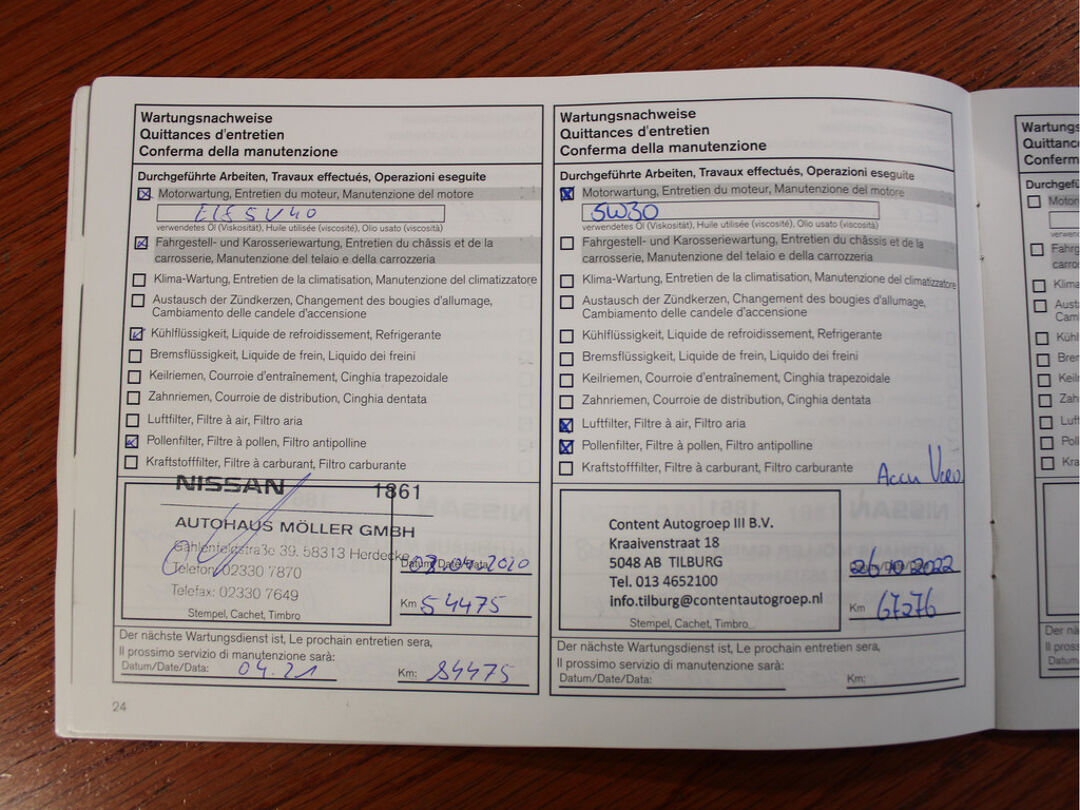 Wartungsnachweise
Quittances d'entretien
Conferma della manutenzione
Durchgeführte Arbeiten, Travaux effectués, Operazioni eseguite
Motorwartung, Entretien du moteur, Manutenzione del motore
Elf 5W40
verwendetes Öl (Viskosität), Huile utilisée (viscosité), Olio usato (viscosità)
Fahrgestell- und Karosseriewartung, Entretien du châssis et de la
carrosserie, Manutenzione del telaio e della carrozzeria
Klima-Wartung, Entretien de la climatisation, Manutenzione del climatizzatore
Austausch der Zündkerzen, Changement des bougies d'allumage,
Cambiamento delle candele d'accensione
Kühlflüssigkeit, Liquide de refroidissement, Refrigerante
Bremsflüssigkeit, Liquide de frein, Liquido dei freini
Keilriemen, Courroie d'entraînement, Cinghia trapezoidale
Zahnriemen, Courroie de distribution, Cinghia dentata
Luftfilter, Filtre à air, Filtro aria
Pollenfilter, Filtre à pollen, Filtro antipolline
Kraftstofffilter, Filtre à carburant, Filtro carburante
NISSAN 1861
AUTOHAUS MÖLLER GMBH
Gahlenfeldstraße 39, 58313 Herdecke
Telefon: 02330 7870
Telefax: 02330 7649
Stempel, Cachet, Timbro
Datum/Date/Data: 03.04.2020
Km 54475
Der nächste Wartungsdienst ist, Le prochain entretien sera,
Il prossimo servizio di manutenzione sarà:
Datum/Date/Data: 04.21 Km: 84475
24
Wartungsnachweise
Quittances d'entretien
Conferma della manutenzione
Durchgeführte Arbeiten, Travaux effectués, Operazioni eseguite
Motorwartung, Entretien du moteur, Manutenzione del motore
5W30
verwendetes Öl (Viskosität), Huile utilisée (viscosité), Olio usato (viscosità)
Fahrgestell- und Karosseriewartung, Entretien du châssis et de la
carrosserie, Manutenzione del telaio e della carrozzeria
Klima-Wartung, Entretien de la climatisation, Manutenzione del climatizzatore
Austausch der Zündkerzen, Changement des bougies d'allumage,
Cambiamento delle candele d'accensione
Kühlflüssigkeit, Liquide de refroidissement, Refrigerante
Bremsflüssigkeit, Liquide de frein, Liquido dei freini
Keilriemen, Courroie d'entraînement, Cinghia trapezoidale
Zahnriemen, Courroie de distribution, Cinghia dentata
Luftfilter, Filtre à air, Filtro aria
Pollenfilter, Filtre à pollen, Filtro antipolline
Kraftstofffilter, Filtre à carburant, Filtro carburante
Accu
Content Autogroep III B.V.
Kraaivenstraat 18
5048 AB TILBURG
Tel. 013 4652100
info.tilburg@contentautogroep.nl
Stempel, Cachet, Timbro
Datum/Date/Data: 26 10 2022
Km 67276
Der nächste Wartungsdienst ist, Le prochain entretien sera,
Il prossimo servizio di manutenzione sarà:
Datum/Date/Data: Km: